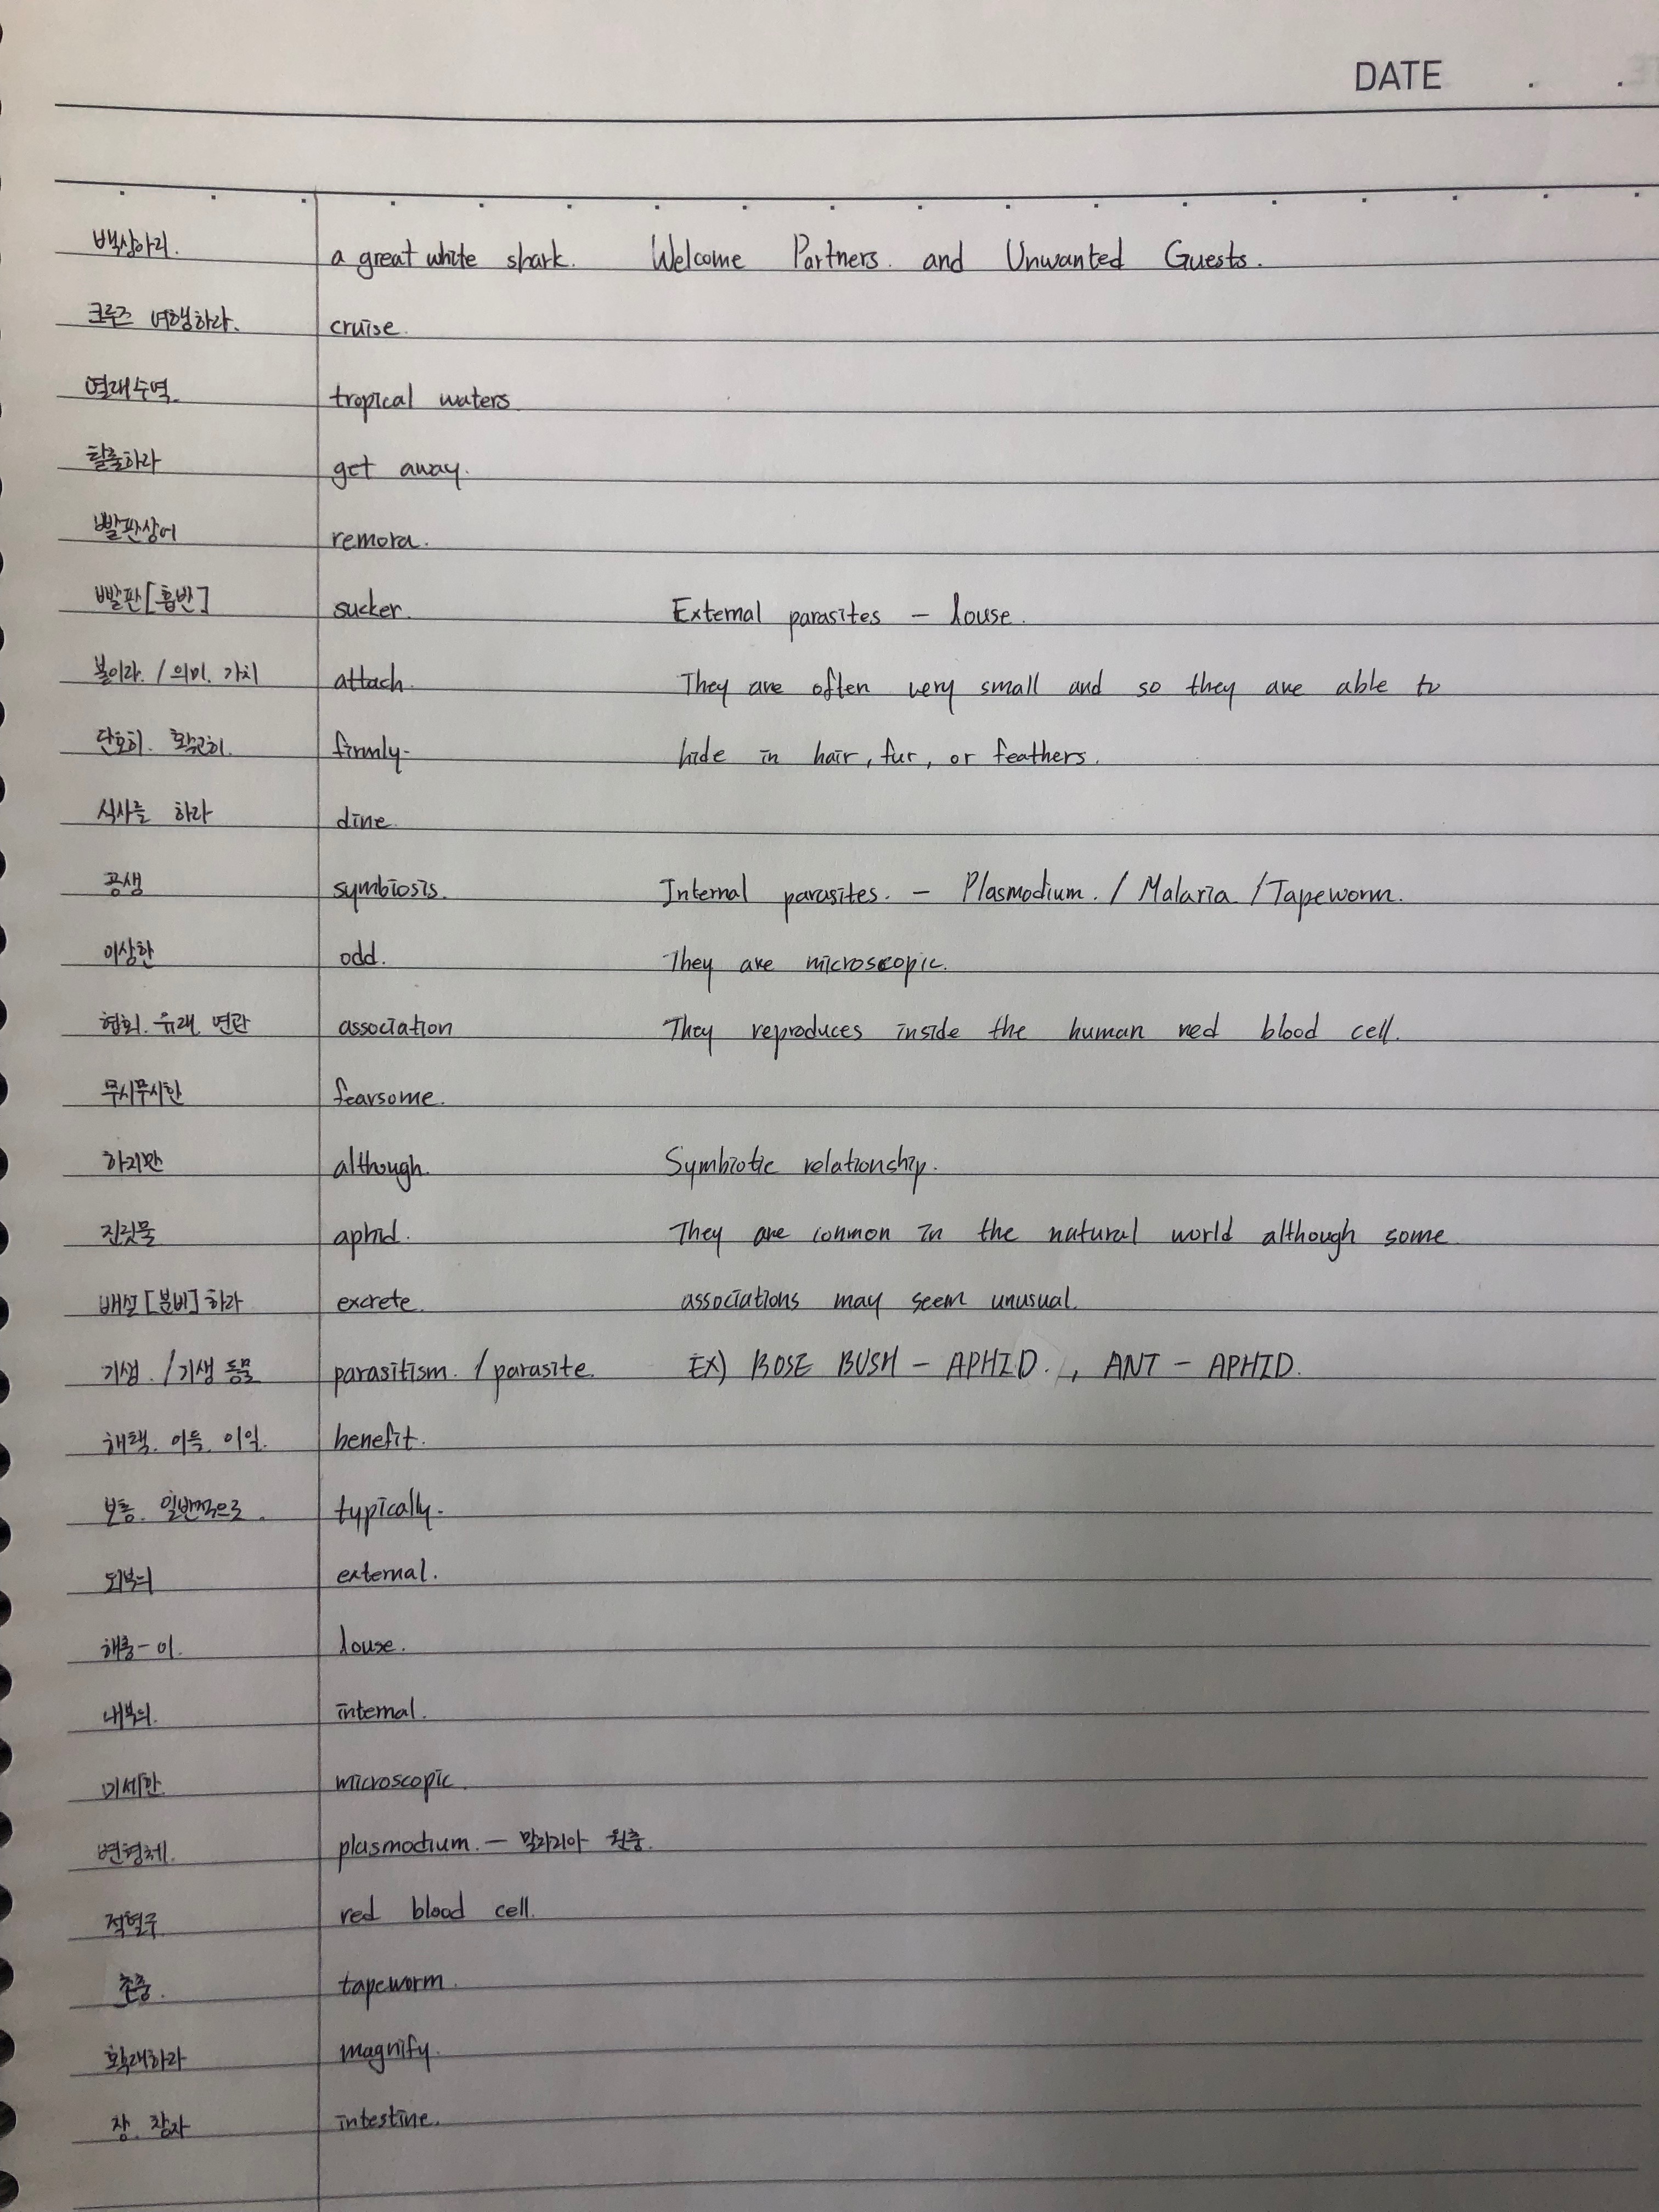 DATE . .
백상아리. a great white shark. Welcome Partners. and Unwanted Guests.
크루즈 여행하라. cruise.
열대수역 tropical waters
탈출하라 get away.
빨판상어 remora.
빨판[흡반] sucker. External parasites - louse.
붙이라. / 의미. 가치 attach. They are often very small and so they are able to
단호히. 확고히. firmly. hide in hair, fur, or feathers.
식사를 하라 dine.
공생 symbiosis. Internal parasites. - Plasmodium. / Malaria / Tapeworm.
이상한 odd. They are microscopic.
협회. 유대. 연관 association They reproduces inside the human red blood cell.
무시무시한 fearsome.
하지만 although. Symbiotic relationship.
진딧물 aphid. They are common in the natural world although some
배설[분비]하라 excrete. associations may seem unusual.
기생. / 기생 동물 parasitism. / parasite. EX) ROSE BUSH - APHID., ANT - APHID.
혜택. 이득. 이익. benefit.
보통. 일반적으로. typically.
외부의 external.
해충-이. louse.
내부의. internal.
미세한. microscopic.
변형체. plasmodium. - 말라리아 원충.
적혈구 red blood cell.
촌충. tapeworm.
확대하라 magnify.
장. 창자 intestine.